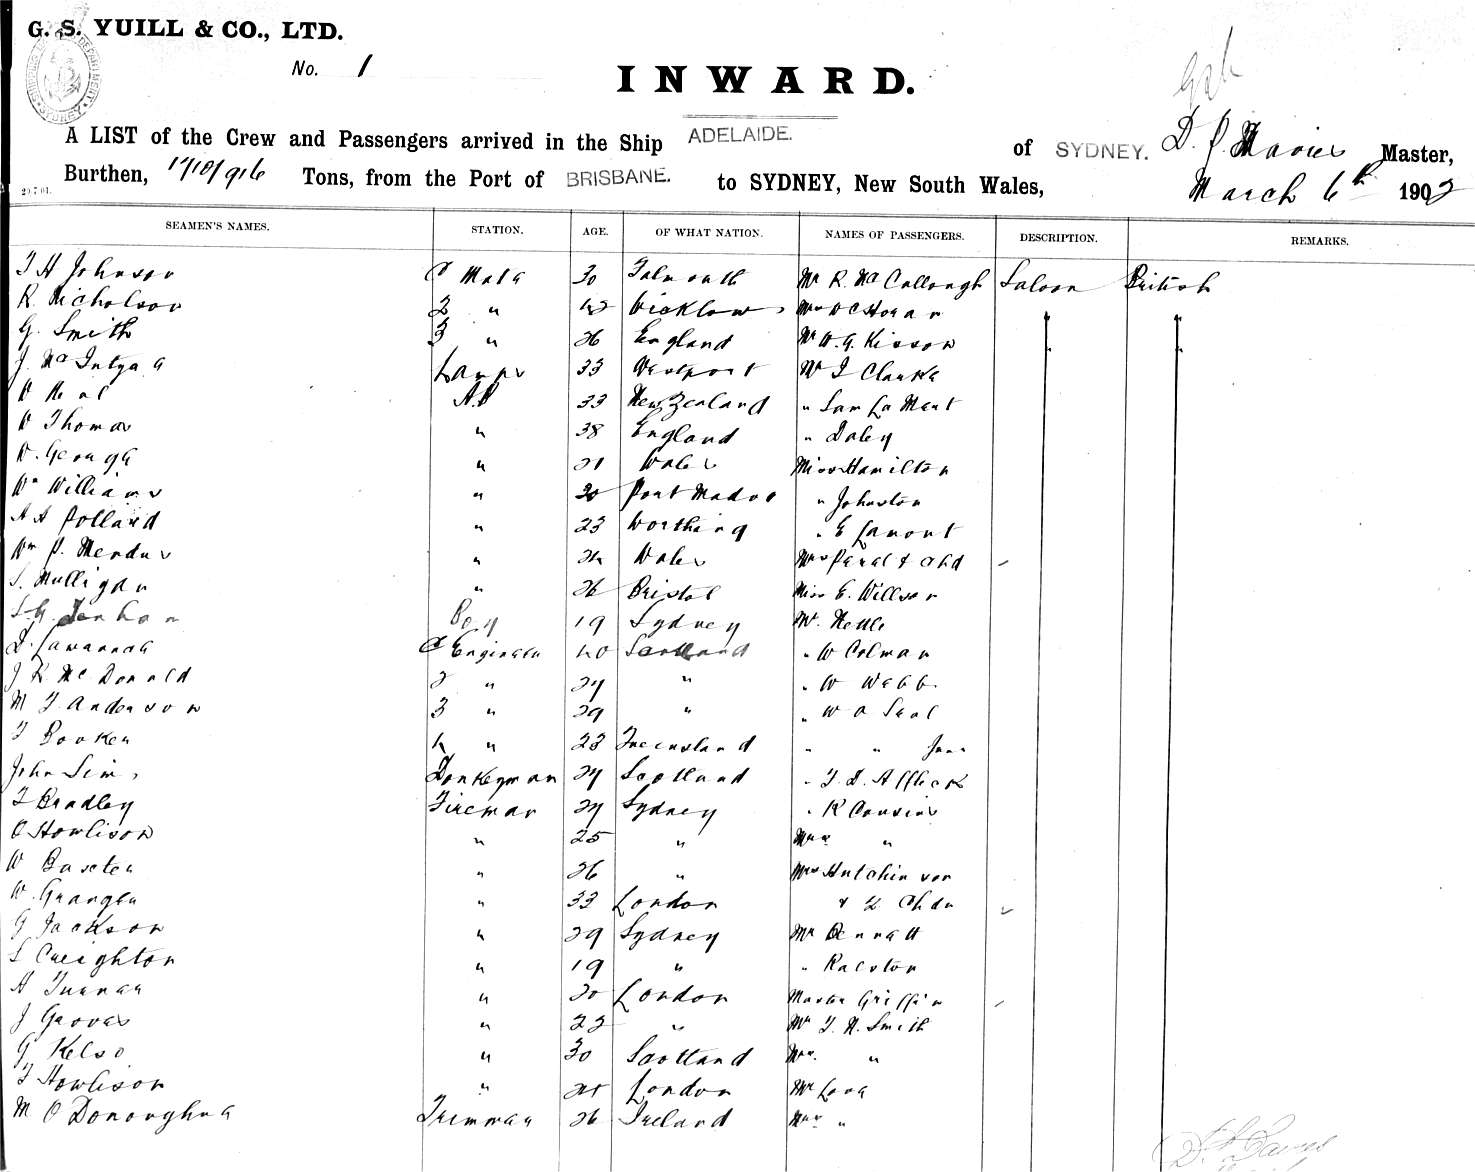 G. S. YUILL & CO., LTD.
No. 1
INWARD.
SHIPPING DEPARTMENT SYDNEY
A LIST of the Crew and Passengers arrived in the Ship ADELAIDE. of SYDNEY. D. J. Davies Master,
Burthen, 1710/916 Tons, from the Port of BRISBANE. to SYDNEY, New South Wales, March 6th 1902
SEAMEN'S NAMES. STATION. AGE. OF WHAT NATION. NAMES OF PASSENGERS. DESCRIPTION. REMARKS.
T H Johnson C Mate 30 Falmouth Mr R. McCullough Saloon British
R. Nicholson 2 " 42 Wicklow Mrs Hogan " "
G. Smith 3 " 26 England Mr W. G. Kisson
J. McIntyre Lamps 33 Westport Mr J Clarke
W Neal A.B 33 New Zealand " Sam La Mert
W Thomas " 38 England " Daley
W. George " 21 Wales Miss Hamilton
Wm Williams " 30 Port Madoc " Johnston
A A Pollard " 23 Worthing " E Lamont
Wm P. " Wales Mrs & chd
S. Mulligan " 26 Bristol Miss E. Willson
Boy 19 Sydney Mr. Nettle
D. Cavannah C Engineer 40 Scotland " W Colman
J K McDonald 2 " 27 " " W Webb
M J. Anderson 3 " 29 " " W A Seal
T Booker 4 " 23 Queensland " " Junr
John Sim Donkeyman 27 Scotland " J. D. Affleck
T Bradley Fireman 27 Sydney " R Cousins
O Howlison " 25 " Mrs "
W Baxter " 26 " Mrs Hutchinson
W. Granger " 33 London & 2 Chdn
G Jackson " 29 Sydney Mr Bennett
S Creighton " 19 " " Ralston
A Turner " 30 London Master Griffin
J Groves " 22 " Mr T. H. Smith
G Kelso " 30 Scotland Mrs. "
T Howlison " 21 London Mr Long
M O Donoghue Trimmer 26 Ireland Mrs "